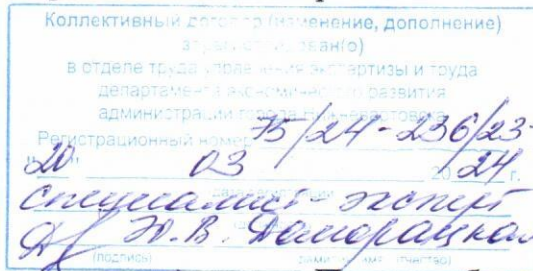 Коллективный договор (изменение, дополнение)
зарегистрирован(о)
в отделе труда управления экспертизы и труда
департамента экономического развития
администрации города Нижневартовска
Регистрационный номер 75/24-236/23-
"20" 03 2024 г.
специалист-эксперт
Ю.В.
(подпись) фамилия имя (отчество)